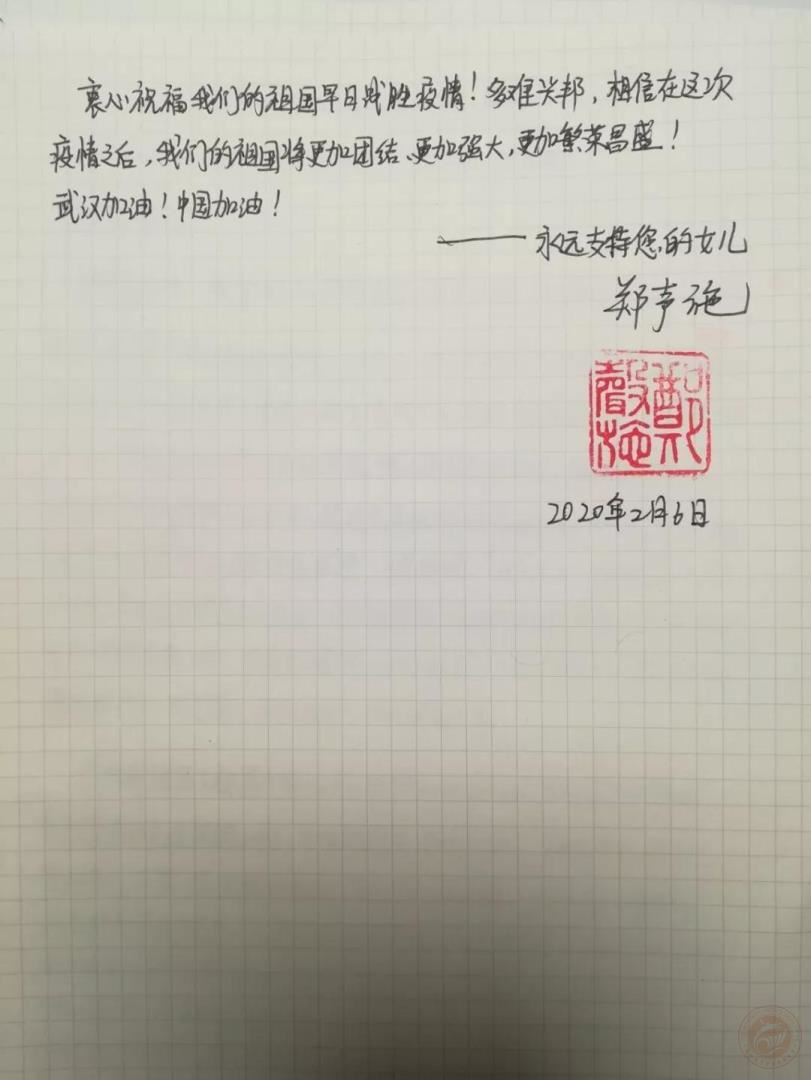 衷心祝福我们的祖国早日战胜疫情！多难兴邦，相信在这次
疫情之后，我们的祖国将更加团结、更加强大，更加繁荣昌盛！
武汉加油！中国加油！
——永远支持您的女儿
郑声施
鄭聲施
2020年2月6日